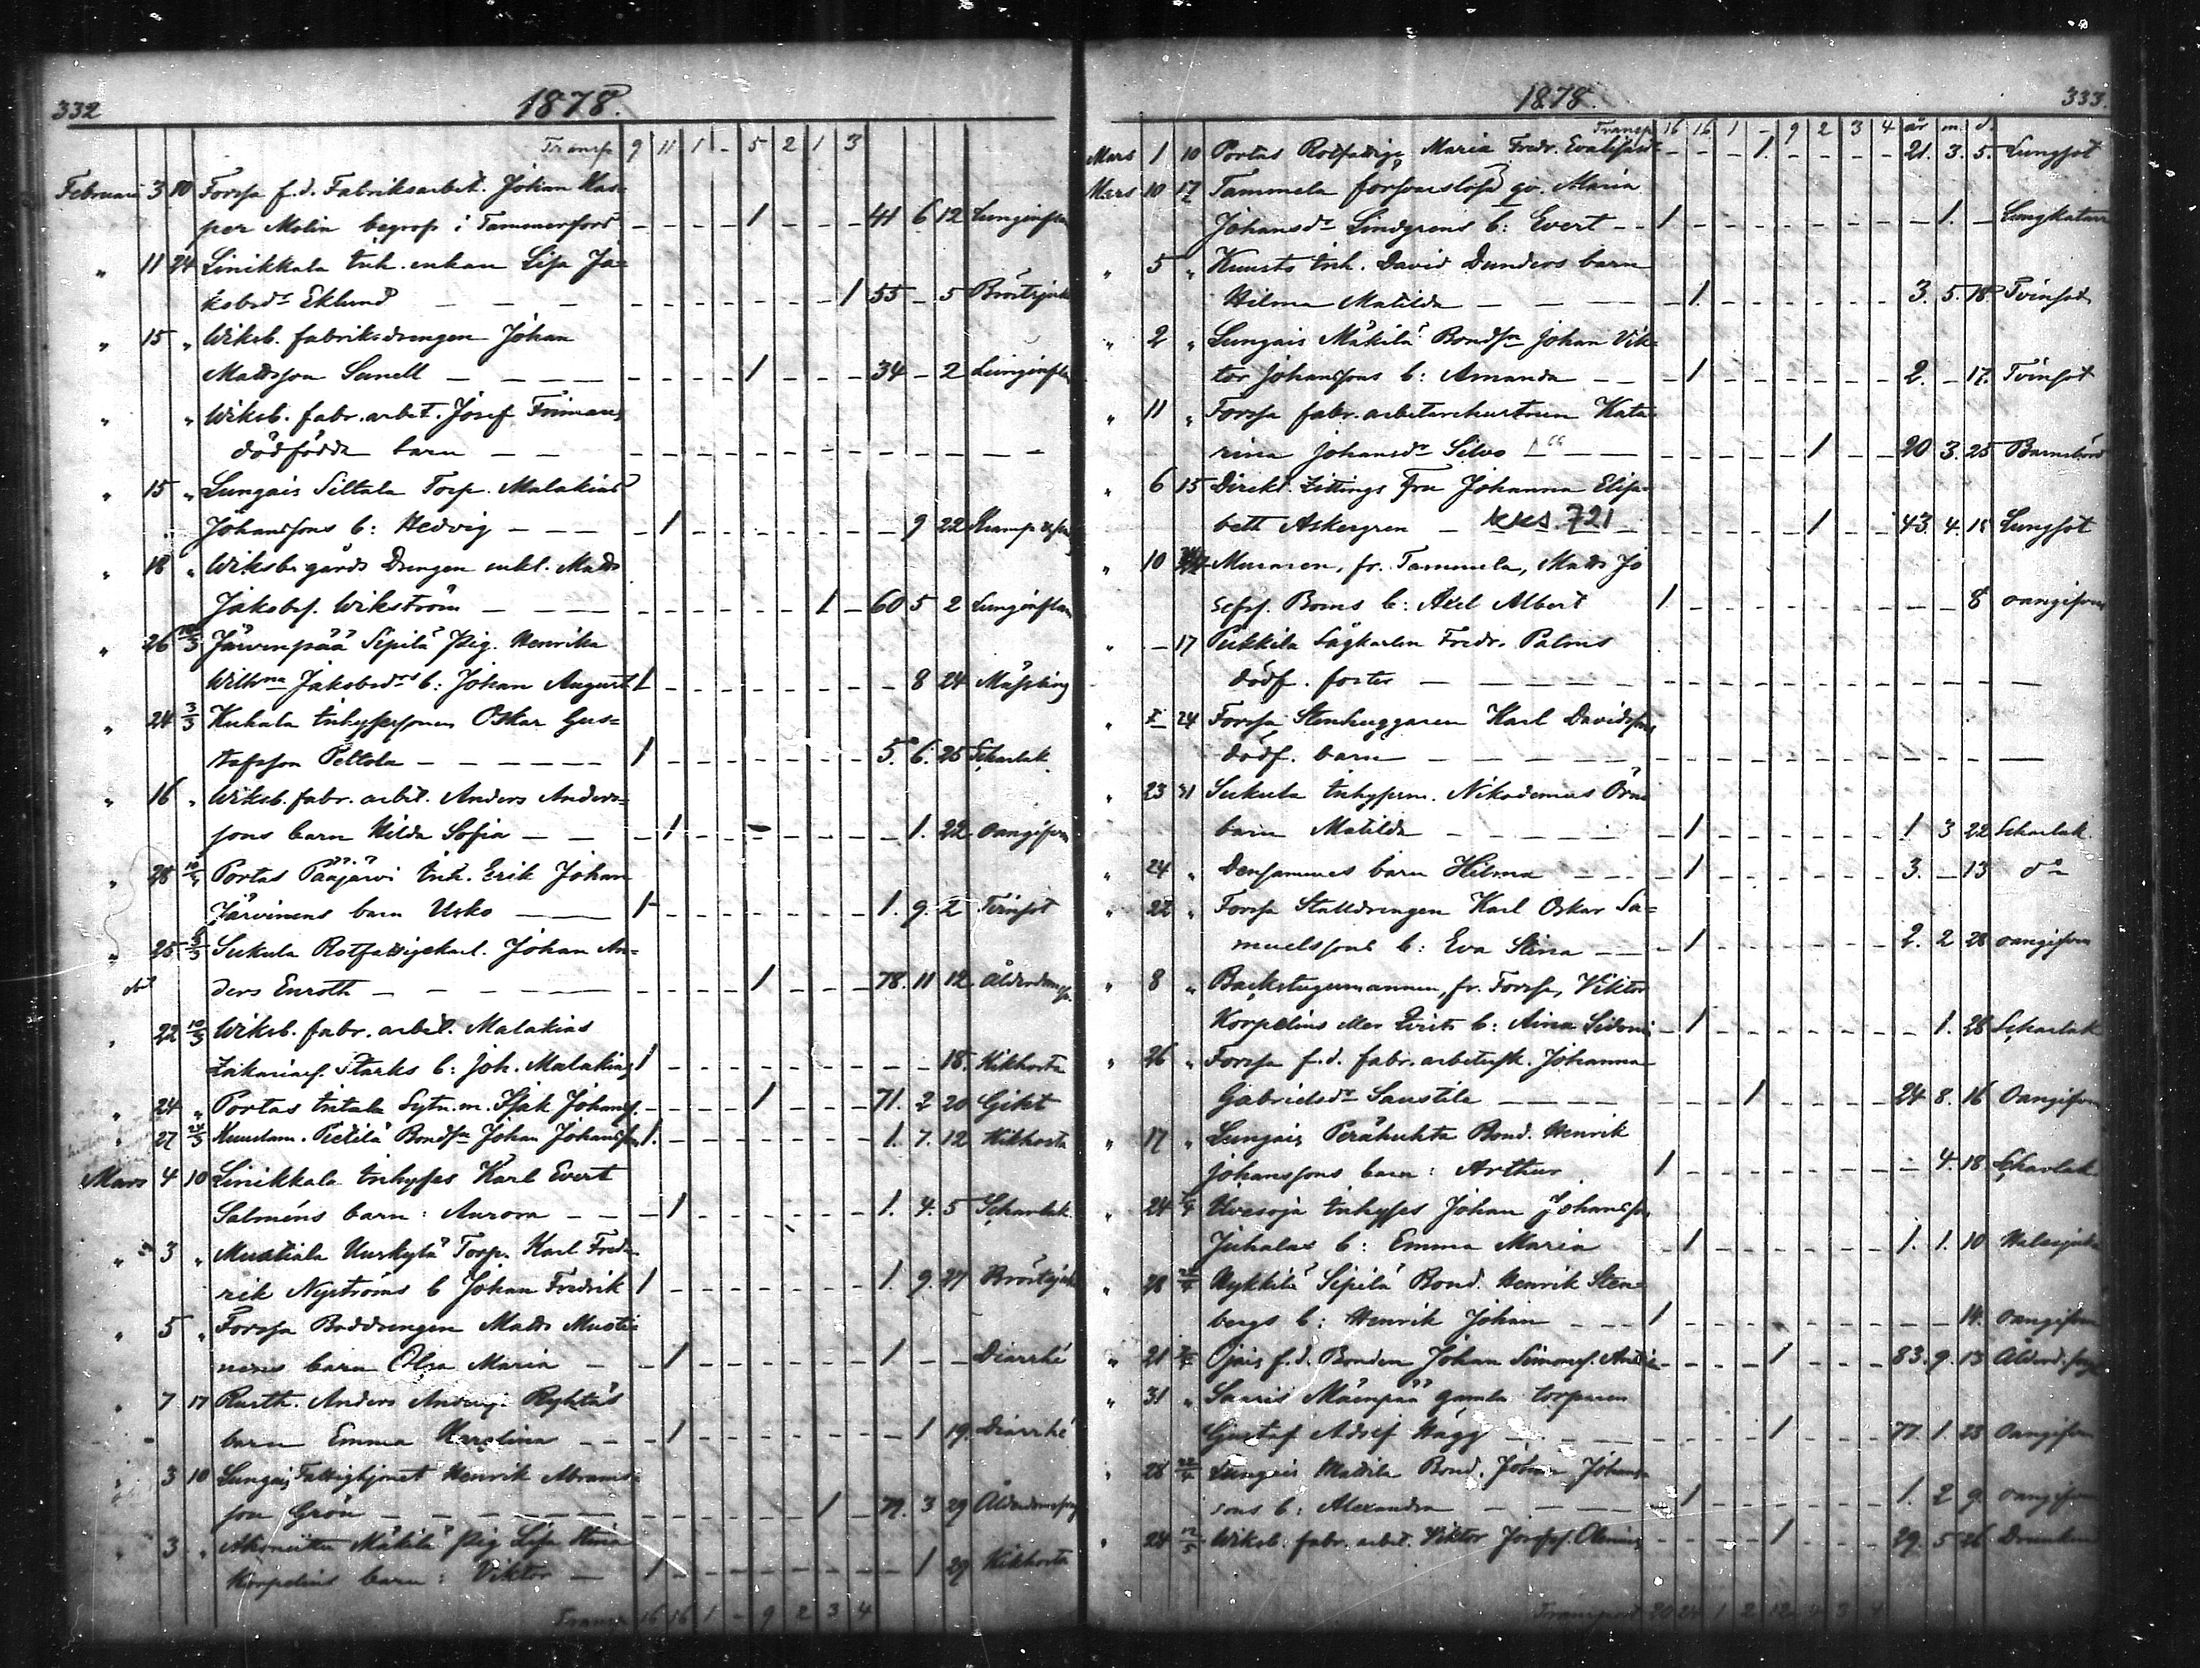 332
1878.
Transp 9 11 1 - 5 2 1 3
Februari 3 10 Forssa f.d. Fabriksarbet. Johan Kas=
per Molin begrofs i Tammerfors - - - - 1 - - - 41 6 12 Lunginflam
" 11 24 Linikkala inh. enkan Lisa Ja=
kobsdr Eklund - - - - - - - - - - 1 55 - 5 Bröstsjuk
" 15 " Wiksb. fabriksdrengen Johan
Mattsson Sanell - - - - - - - - 1 - - - 34 - 2 Lunginflam
" " Wiksb. fabr. arbet. Josef Frimans
dödfödda barn - - - - - - - - - - - - -
" 15 " Lungais Siltala Torp. Malakias
Johanssons b: Hedvig - - - - 1 - - - - - - - 9 22
" 18 " Wiksbergårds Drengen enkl. Matts
Jakobss. Wikström - - - - - - - - - 1 - 60 5 2 Lunginflam
" 26 10/3 Järvenpää Sepilä Pig. Henrika
Wilhna Jakobsdrs b: Johan August 1 - - - - - - - - 8 24 Mässling
" 24 3/3 Kuhala inhysessonen Oskar Gus=
tafsson Peltola - - - - - - 1 - - - - - - - 5. 6. 25 Scharlak.
" 16 " Wiksb. fabr. arbet. Anders Anders=
sons barn Hilda Sofia - - - 1 - - - - - - - 1. 22 oangifven
" 28 10/4 Portas Pääjärvi Inh. Erik Johan
Järvinens barn Usko - - - 1 - - - - - - - 1. 9. 2 Tvinsot
" 25 3/3 Sukula Rotfattigekarl. Johan An=
ders Enroth - - - - - - - 1 - - - 78. 11 12. Ålderdoms
" 22 10/3 Wiksb. fabr. arbet. Malakias
Zakarias. Starks b: Joh. Malakias 1 - - - - - - - - - 18. Kikhosta
" 24 " Portas Sytn.m. Isak Johanss. - - - - 1 - - - 71. 2 20 Gikt
" 27 24/3 Bondsn Johan Johansson 1. - - - - - - - 1. 7. 12 Kikhosta
Mars 4 10 Linikkala inhyses Karl Evert
Salméns barn: Aurora - - - 1 - - - - - - 1. 4. 5 Scharlak.
" 3 " Mustiala Uuskylä Torp. Karl Fred=
rik Nyströms b Johan Fredrik 1 - - - - - - - 1. 9. 27 Bröstsjuk
" 5 " Forssa Boddrengen Matts Musti=
nens barn Olga Maria - - 1 - - - - - - 1 - - Diarrhé
" 7 17 Rusth. Anders Anderss. Ryhtäs
barn Emma Karolina - - - 1 - - - - - - - 1 19. Diarrhé
" 3 10 Lungais Fattighjonet Henrik Abrams=
son Grön - - - - - - - - - - 1 - 79. 3 29 Ålderdoms
" 3 " Mäkilä Pig Lisa Stina
Korpelins barn: Viktor - 1 - - - - - - - - 1 29 Kikhosta
Transp 16 16 1 - 9 2 3 4
1878.
333.
Transp 16 16 1 - 9 2 3 4 år m. d.
Mars 1 10 Portas Rotfattige Maria Fredr. - - - 1. - - - - 21. 3. 5. Lungsot
Mars 10 17 Tammela försvarslösa qv. Maria
Johansdr Lindgrens b: Evert - - 1 - - - - - - - - 1. - Lungkatarr
" 5 " Kuusto inh. David Dunders barn
Hilma Matilda - - - - 1. - - - - - - 3. 5. 18. Tvinsot
" 2 " Lungais Mäkilä Bondsn Johan Vik=
tor Johanssons b: Amanda - - - 1 - - - - - - 2. - 17. Tvinsot
" 11 " Forssa fabr. arbetarehustrun Kata=
rina Johansdr Silvo - - - - - - - 1 - - 20 3. 25 Barnsbörd
" 6 15 Direkt. Zittings Fru Johanna Elisa=
beth Askergren - kks. 721 - - - - - 1 - - 43. 4. 15 Lungsot
" 10 Muraren, fr. Tammela, Matts Jo=
sefss. Boms b: Axel Albert 1. - - - - - - - - - 8 oangifven
" - 17 Pukkila Sågkarlen Fredr. Palms
dödf. foster - - - - - - - - - - - -
" - 24 Forssa Stenhuggaren Karl Davidssons
dödf. barn - - - - - - - - - - - -
" 23 31 Sukula inhysesm. Nikodemus Örns
barn Matilda - - - - - 1 - - - - - - 1 3 22 Scharlak.
" 24 " Densammes barn Hilma - - - 1 - - - - - - 3. - 13 do
" 22 " Forssa Stalldrengen Karl Oskar Sa=
muelssons b: Eva Stina - - - 1 - - - - - - 2. 2 28 oangifven
" 8 " Backstugumannen, fr. Forssa, Viktor
Korpelins eller b: Aina Sidonia - 1 - - - - - - - 1. 28 Scharlak
" 26 " Forssa f.d. fabr. arbetersk. Johanna
Gabrielsdr Saustila - - - - - - 1 - - - - 24 8. 16 Oangifven
" 17 " Lungais Peräkuhta Bond. Henrik
Johanssons barn: Arthur 1 - - - - - - - - 4. 18 Scharlak.
" 24 Uvesoja inhyses Johan Johansson
Juhalas b: Emma Maria - 1 - - - - - - 1. 1. 10 Halssjuka
" 28 Hykkilä Sepilä Bond. Henrik Sten=
bergs b: Henrik Johan - - - 1 - - - - - - - - - 14. oangifven
" 21 Ojais f.d. Bonden Johan Simonss. - - - - 1 - - - 83. 9. 13 Ålderd.
" 31 " Saaris Mäenpää gamla torparen
Gustaf Adolf Hägg - - - - - - 1 - - - 77. 1. 23 Oangifven
" 28 Lungais Mattila Bond. Johan Johans=
sons b: Alexandra - - - - 1 - - - - - - 1. 2 9. oangifven
" 24 12/5 Wiksb. fabr. arbet. Viktor Josefss. Olenius - - - - 1 - - - 29. 5 26
Transport 20 24 1 2 12 4 3 4